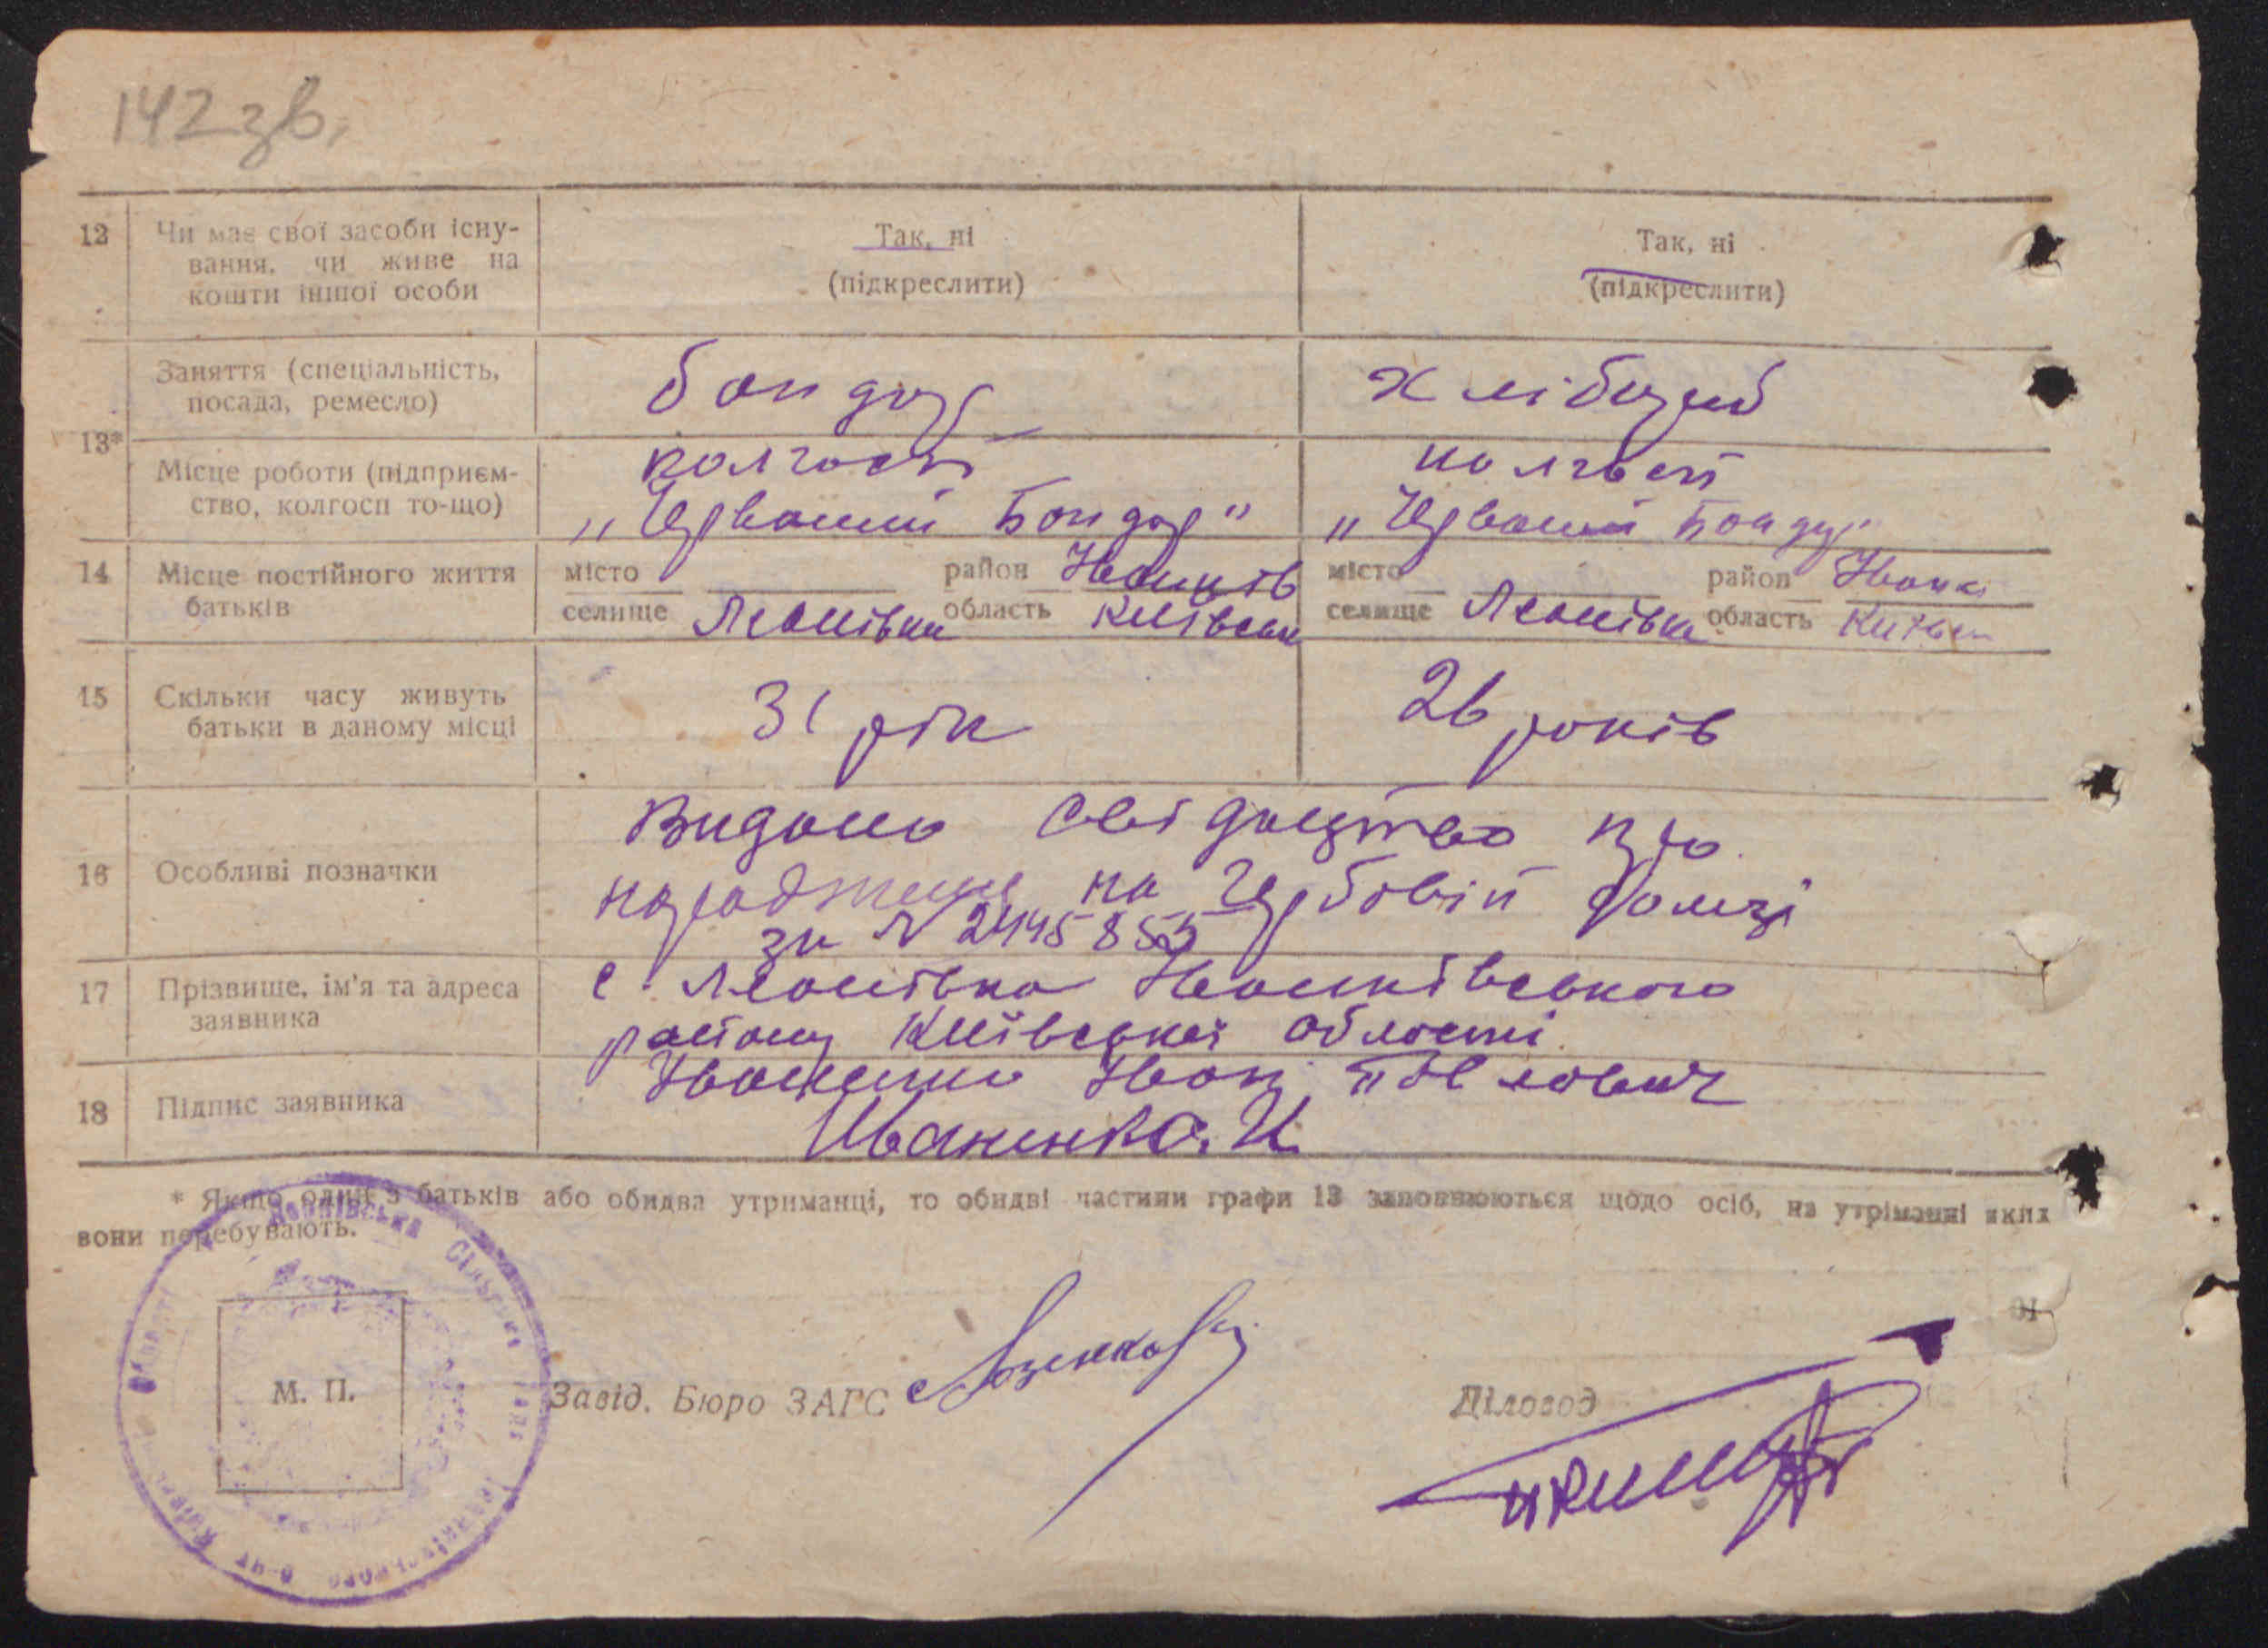 142 зв.
12 Чи має свої засоби існу-
вання, чи живе на
кошти іншої особи
Так, ні
(підкреслити)
Так, ні
(підкреслити)
13*
Заняття (спеціальність,
посада, ремесло)
бондар
хлібороб
Місце роботи (підприєм-
ство, колгосп то-що)
колгосп
„Червоний Бондар"
колгосп
„Червоний Бондар"
14 Місце постійного життя
батьків
місто район Іванків
селище Леонівка область Київськ
місто район Іванк
селище Леонівка область Київськ
15 Скільки часу живуть
батьки в даному місці
31 рік
26 років
16 Особливі позначки
Видано свідоцтво про
народження на Гербовій
за № 2445855
17 Прізвище, ім'я та адреса
заявника
с. Леонівка Іванківського
району Київської області
Іваненко Іван Павлович
18 Підпис заявника
Иваненко. И
* Якщо один з батьків або обидва утриманці, то обидві частини графи 13 заповнюються щодо осіб, на утріманні яких
вони перебувають.
Леонівська Сільська Рада Іванківського р-ну
М. П.
Завід. Бюро ЗАГС
Діловод